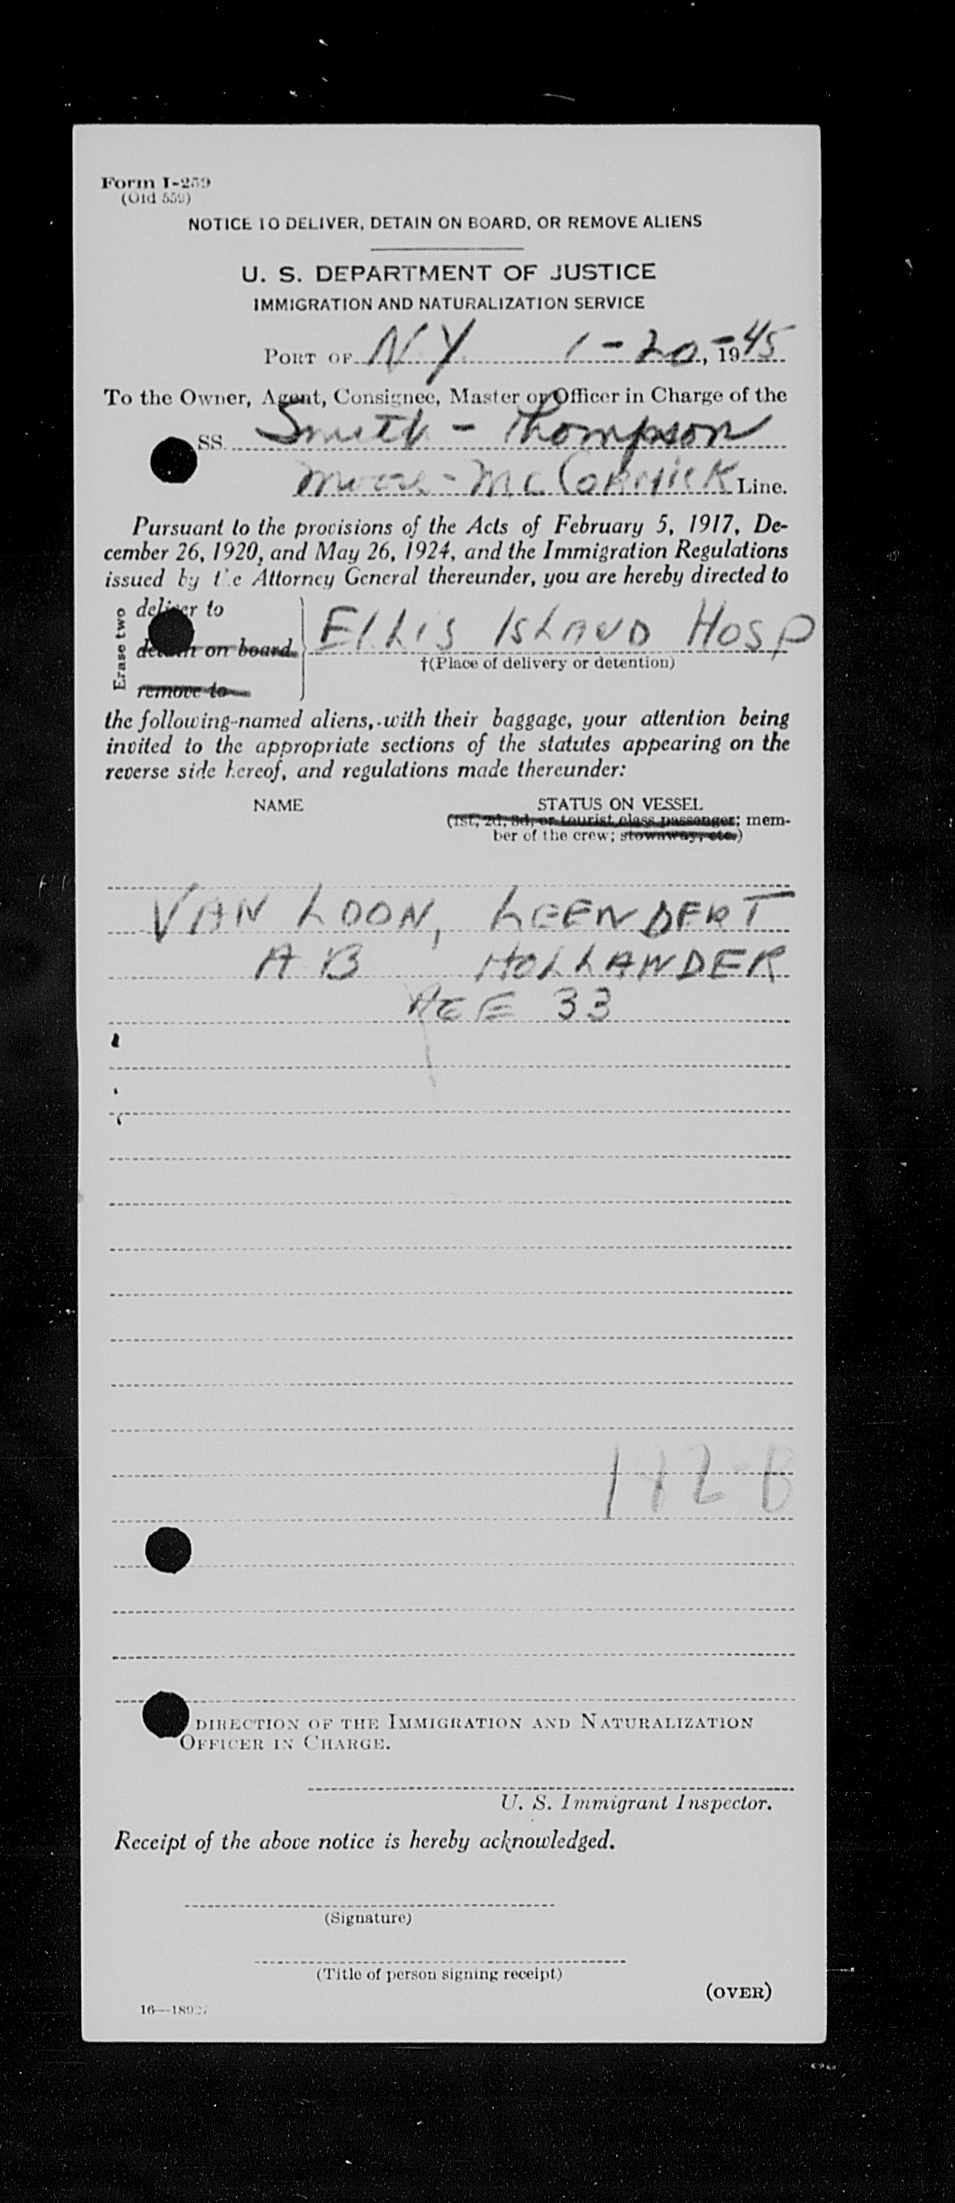 Form I-259
(Old 559)
NOTICE TO DELIVER, DETAIN ON BOARD, OR REMOVE ALIENS
U. S. DEPARTMENT OF JUSTICE
IMMIGRATION AND NATURALIZATION SERVICE
PORT OF N.Y. 1-20-, 1945
To the Owner, Agent, Consignee, Master or Officer in Charge of the
SS. Smith - Thompson
Moore-McCormick Line.
Pursuant to the provisions of the Acts of February 5, 1917, De-
cember 26, 1920, and May 26, 1924, and the Immigration Regulations
issued by the Attorney General thereunder, you are hereby directed to
Erase two
deliver to
detain on board
remove to
ELLIS ISLAND HOSP
†(Place of delivery or detention)
the following-named aliens, with their baggage, your attention being
invited to the appropriate sections of the statutes appearing on the
reverse side hereof, and regulations made thereunder:
NAME STATUS ON VESSEL
(1st, 2d, 3d, or tourist class passenger; mem-
ber of the crew; stowaway, etc.)
VAN LOON, LEENDERT
AB HOLLANDER
AGE 33
DIRECTION OF THE IMMIGRATION AND NATURALIZATION
OFFICER IN CHARGE.
U. S. Immigrant Inspector.
Receipt of the above notice is hereby acknowledged.
(Signature)
(Title of person signing receipt)
(OVER)